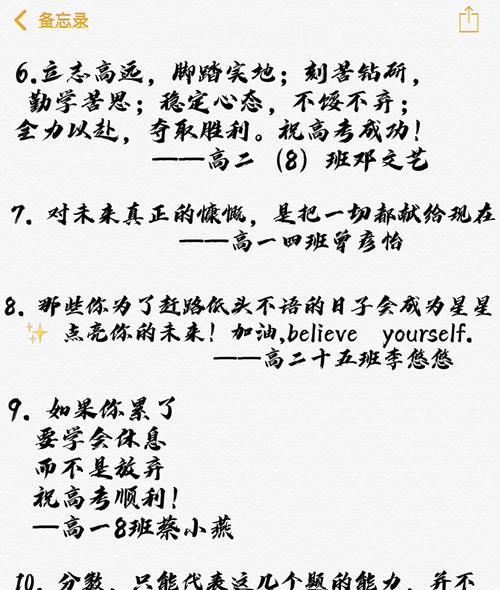 备忘录
6.立志高远，脚踏实地；刻苦钻研，
勤学善思；稳定心态，不馁不弃；
全力以赴，夺取胜利。祝高考成功！
——高二（8）班邓文艺
7. 对未来真正的慷慨，是把一切都献给现在
——高一四班曾彦怡
8. 那些你为了赶路低头不语的日子会成为星星
✨点亮你的未来！加油,believe yourself.
——高二十五班李悠悠
9. 如果你累了
要学会休息
而不是放弃
祝高考顺利！
—高一8班蔡小燕
10. 分数，只能代表这几个题的能力，并不